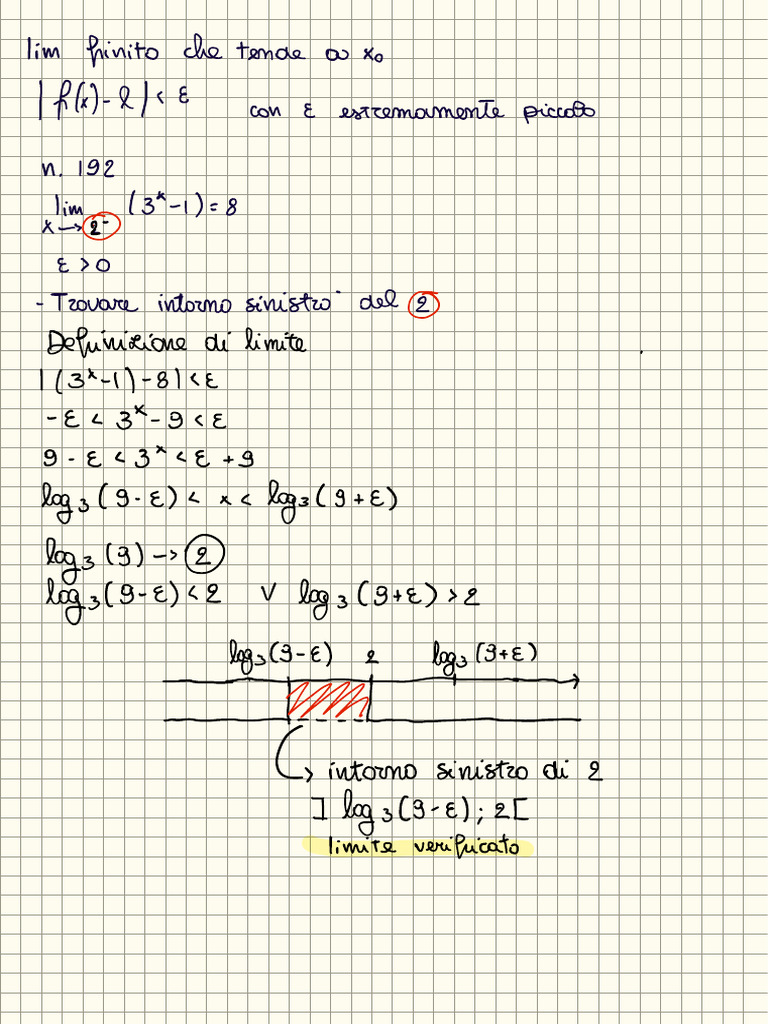 lim finito che tende a x₀
|f(x)-l|< ε con ε estremamente piccolo
n. 192
lim (3ˣ-1)=8
x→2⁻
ε>0
- Trovare intorno sinistro del 2
Definizione di limite
|(3ˣ-1)-8|<ε
-ε < 3ˣ-9 <ε
9-ε <3ˣ<ε+9
log₃(9-ε)< x < log₃(9+ε)
log₃(9) → 2
log₃(9-ε)<2 V log₃(9+ε)>2
log₃(9-ε) 2 log₃(9+ε)
→ intorno sinistro di 2
] log₃(9-ε); 2[
limite verificato